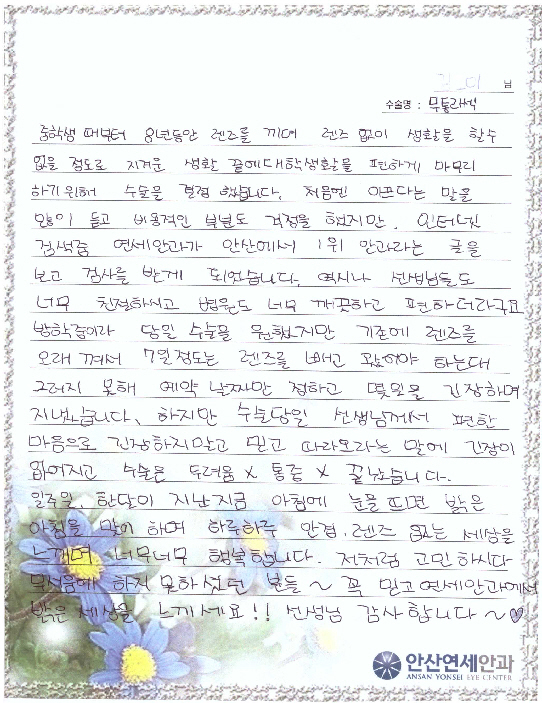 님
수술명 : 무통라섹
중학생 때부터 8년동안 렌즈를 끼며 렌즈 없이 생활을 할수
없을 정도로 지겨운 생활 끝에 대학생활을 편하게 마무리
하기위해 수술을 결정 했습니다. 처음엔 아프다는 말을
많이 듣고 비용적인 부분도 걱정을 했지만, 인터넷
검색중 연세안과가 안산에서 1위 안과라는 글을
보고 검사를 받게 되었습니다. 역시나 선생님들도
너무 친절하시고 병원도 너무 깨끗하고 편하더라구요
방학중이라 당일 수술을 원했지만 기존에 렌즈를
오래 껴서 7일정도는 렌즈를 빼고 왔어야 하는대
그러지 못해 예약 날짜만 정하고 몇일을 긴장하며
지냈습니다. 하지만 수술당일 선생님께서 편한
마음으로 긴장하지말고 믿고 따라오라는 말에 긴장이
없어지고 수술은 두려움 x 통증 x 끝났습니다.
일주일, 한달이 지난지금 아침에 눈을 뜨면 밝은
아침을 맞이 하며 하루하루 안경, 렌즈 없는 세상을
느끼며 너무너무 행복합니다. 저처럼 고민하시다
무서움에 하지 못하셨던 분들~ 꼭 믿고 연세안과에서
밝은 세상을 느끼세요!! 선생님 감사합니다~♡
안산연세안과
ANSAN YONSEI EYE CENTER